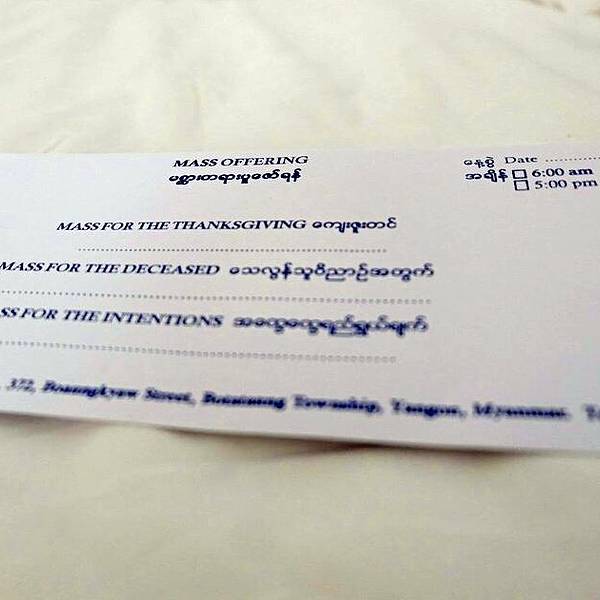 MASS OFFERING
မစ္ဆားတရားပူဇော်ရန်
နေ့စွဲ Date ..............
အချိန် ☐ 6:00 am
☐ 5:00 pm
MASS FOR THE THANKSGIVING ကျေးဇူးတင်
MASS FOR THE DECEASED သေလွန်သူဝိညာဉ်အတွက်
FOR THE INTENTIONS အထွေထွေရည်ရွယ်ချက်
372, Boaungkyaw Street, Botataung Township, Yangon, Myanmar.